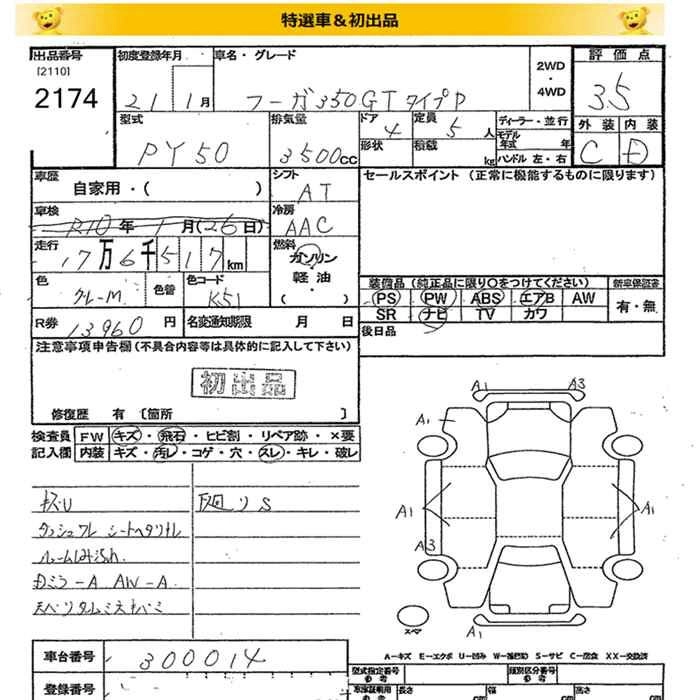 特選車&初出品
出品番号
[2110]
2174
初度登録年月
21 1月
車名・グレード
フーガ350GTタイプP
2WD
・
4WD
評価点
3.5
型式
PY50
排気量
3500CC
ドア
4
定員
5人
形状
積載
kg
ディーラー・並行
モデル年式 年
ハンドル 左・右
外装
C
内装
D
車歴
自家用・( )
シフト
AT
冷房
AAC
セールスポイント (正常に機能するものに限ります)
車検
R10年1月(26日)
走行
17万6千517km
燃料
ガソリン
軽油
・
( )
色
グレーM
色替
色コード
K51
装備品(純正品に限り○をつけてください)
PS PW ABS エアB AW
SR ナビ TV カワ
新車保証書
有・無
R券
13960円
名変通知期限 月 日
後日品
注意事項申告欄(不具合内容等は具体的に記入して下さい)
初出品
修復歴 有 〔箇所 〕
検査員記入欄
FW キズ・飛石・ヒビ割・リペア跡・×要
内装 キズ・汚レ・コゲ・穴・スレ・キレ・破レ
廻りS
ダッシュワレ シートヘタリナレ
ルーム
ミラーA AW-A
A1 A3
A1
A1 A1
A3
A1
スペア
A-キズ E-エクボ U-凹み W-補修跡 S-サビ C-腐食 XX-交換済
車台番号
300014
型式指定番号
参考
類別区分番号
参考
登録番号
長さ
幅
高さ
cm cm cm